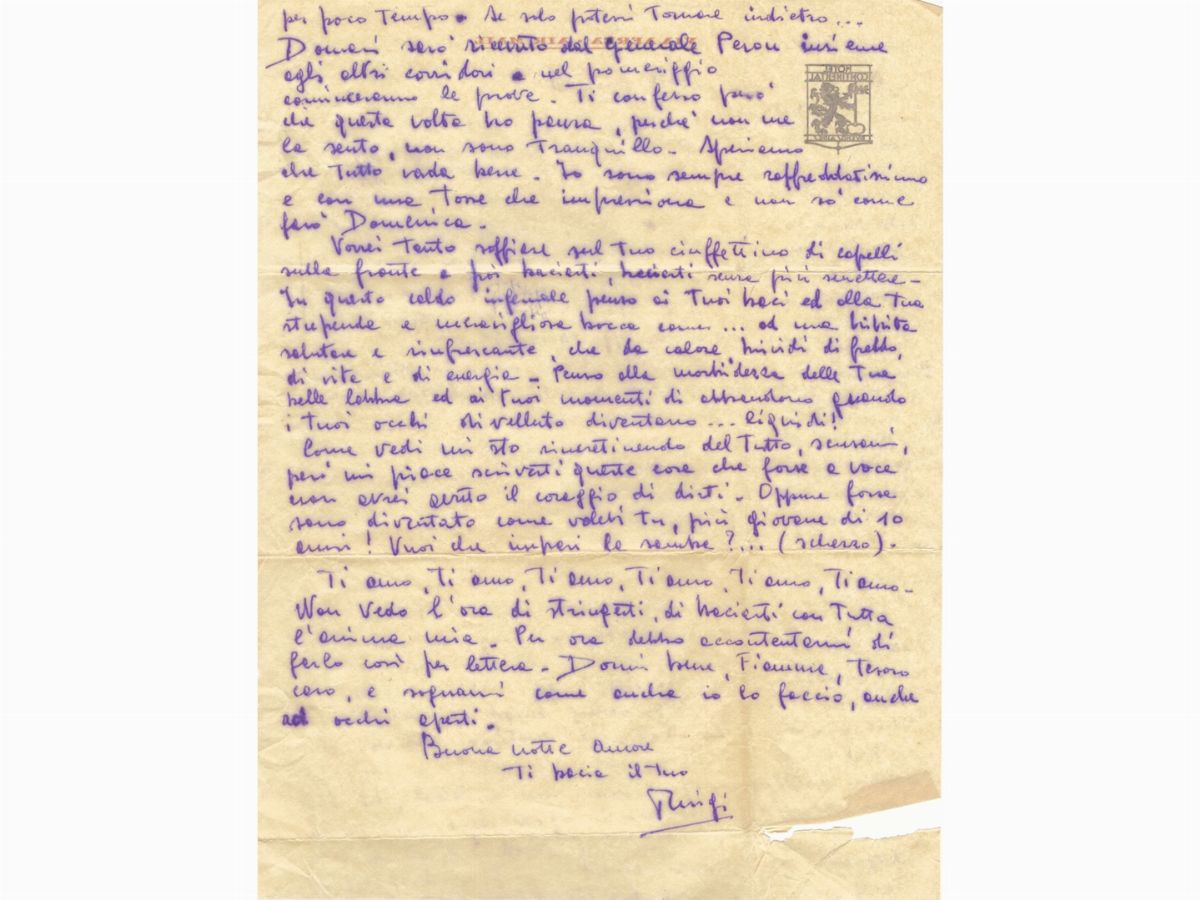 per poco Tempo. Se solo potessi Tornare indietro...
Domani sarò ricevuto dal generale Peron insieme
agli altri corridori e nel pomeriggio
cominceranno le prove. Ti confesso però
che questa volta ho paura, perché non me
la sento, non sono Tranquillo. Speriamo
che Tutto vada bene. Io sono sempre raffreddatissimo
e con una Tosse che impressiona e non so come
farò Domenica.
Vorrei Tanto soffiare sul Tuo ciuffettino di capelli
sulla fronte e poi baciarti, baciarti senza più smettere.
In questo caldo infernale penso ai Tuoi baci ed alla Tua
stupenda e meravigliosa bocca come... ad una bibita
salutare e rinfrescante, che da calore, brividi di freddo,
di vita e di energia. Penso alla morbidezza delle Tue
belle labbra ed ai Tuoi momenti di abbandono quando
i Tuoi occhi di velluto diventano... liquidi!
Come vedi mi sto rincretinendo del Tutto, scusami,
però mi piace scriverti queste cose che forse a voce
non avrei avuto il coraggio di dirti. Oppure forse
sono diventato come volevi Tu, più giovane di 10
anni! Vuoi che impari la samba?... (scherzo).
Ti amo, Ti amo, Ti amo, Ti amo, Ti amo, Ti amo.
Non vedo l'ora di stringerti, di baciarti con Tutta
l'anima mia. Per ora debbo accontentarmi di
farlo così per lettera. Dormi bene, Fiamma, Tesoro
caro, e sognami come anche io lo faccio, anche
ad occhi aperti.
Buona notte amore
Ti bacia il Tuo
Luigi